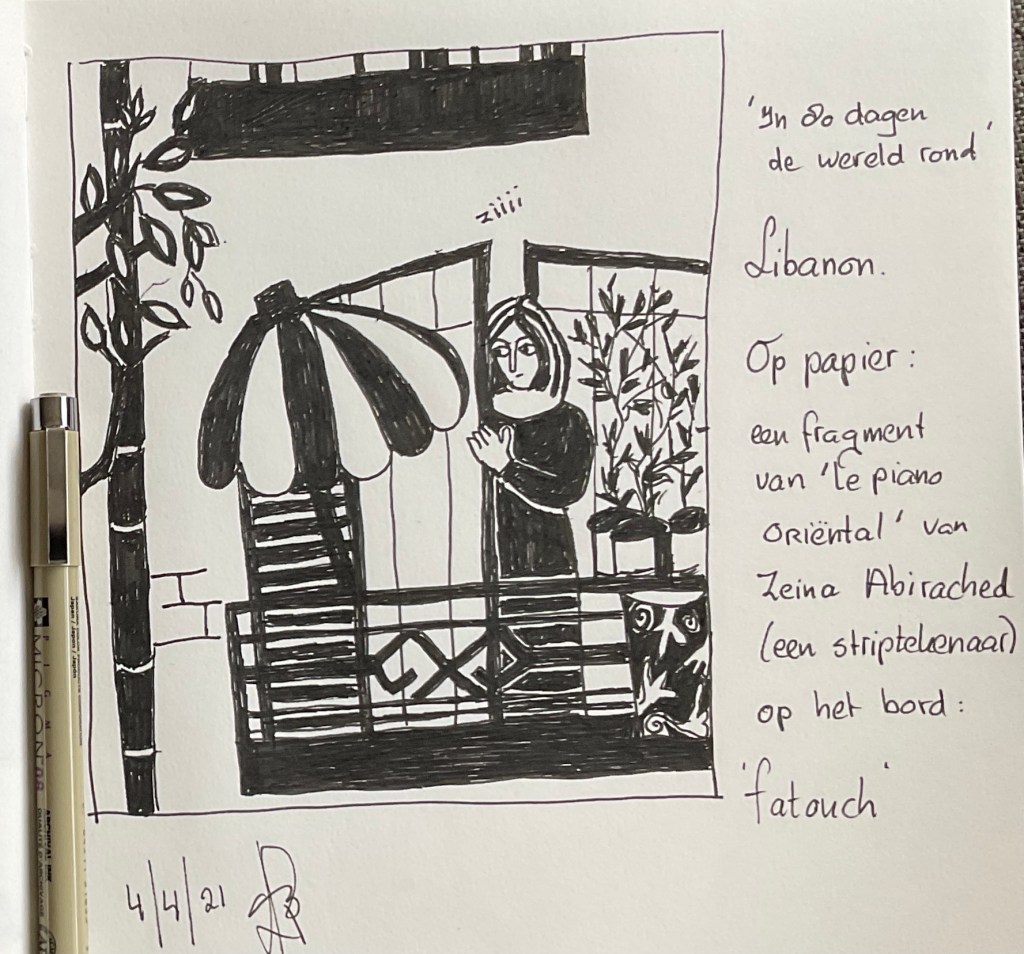 ziiii
'In 80 dagen
de wereld rond'
Libanon.
Op papier:
een fragment
van 'le piano
oriëntal' van
Zeina Abirached
(een striptekenaar)
op het bord:
'fatouch'
4/4/21
PIGMA
MICRON 08
ARCHIVAL INK
Japan / Japon / Japón